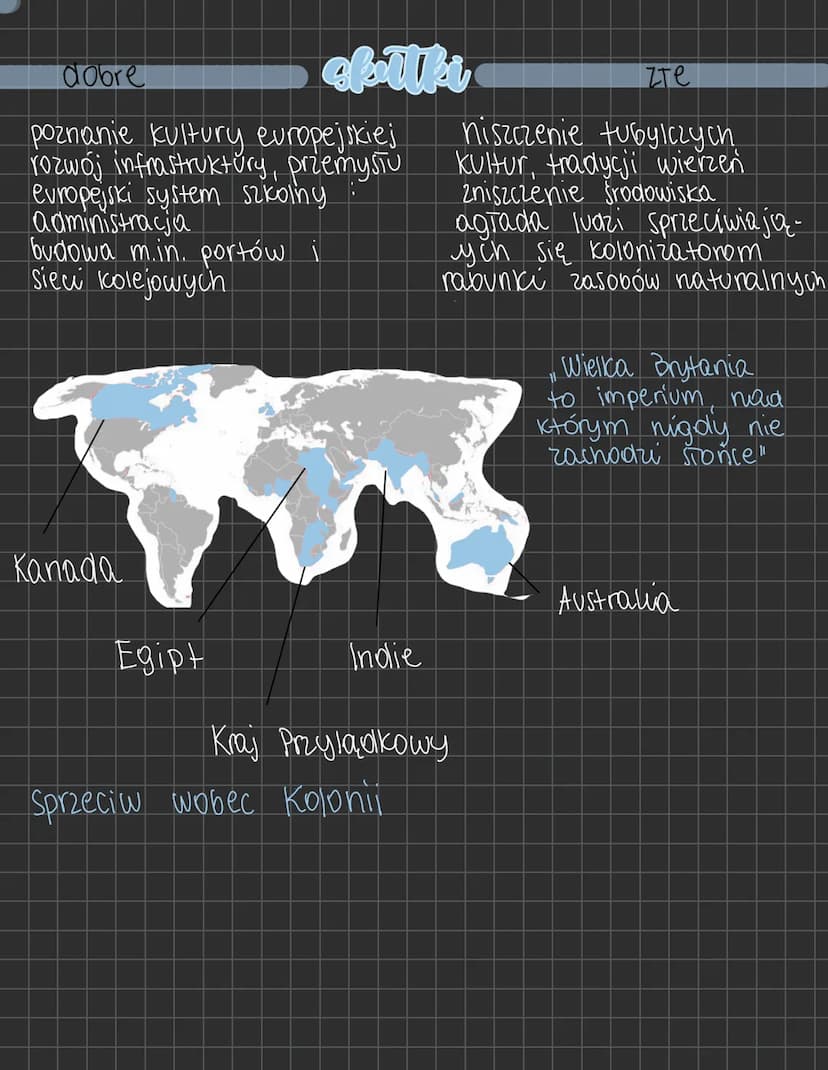 skutki
dobre
złe
poznanie kultury europejskiej
rozwój infrastruktury, przemysłu
europejski system szkolny i
administracja
budowa m.in. portów i
sieci kolejowych
niszczenie tubylczych
kultur, tradycji wierzeń
zniszczenie środowiska
agłada ludzi sprzeciwiają-
ych się kolonizatorom
rabunki zasobów naturalnych
„Wielka Brytania
to imperium, nad
którym nigdy nie
zachodzi słońce"
Kanada
Australia
Egipt
Indie
Kraj Przylądkowy
Sprzeciw wobec Kolonii